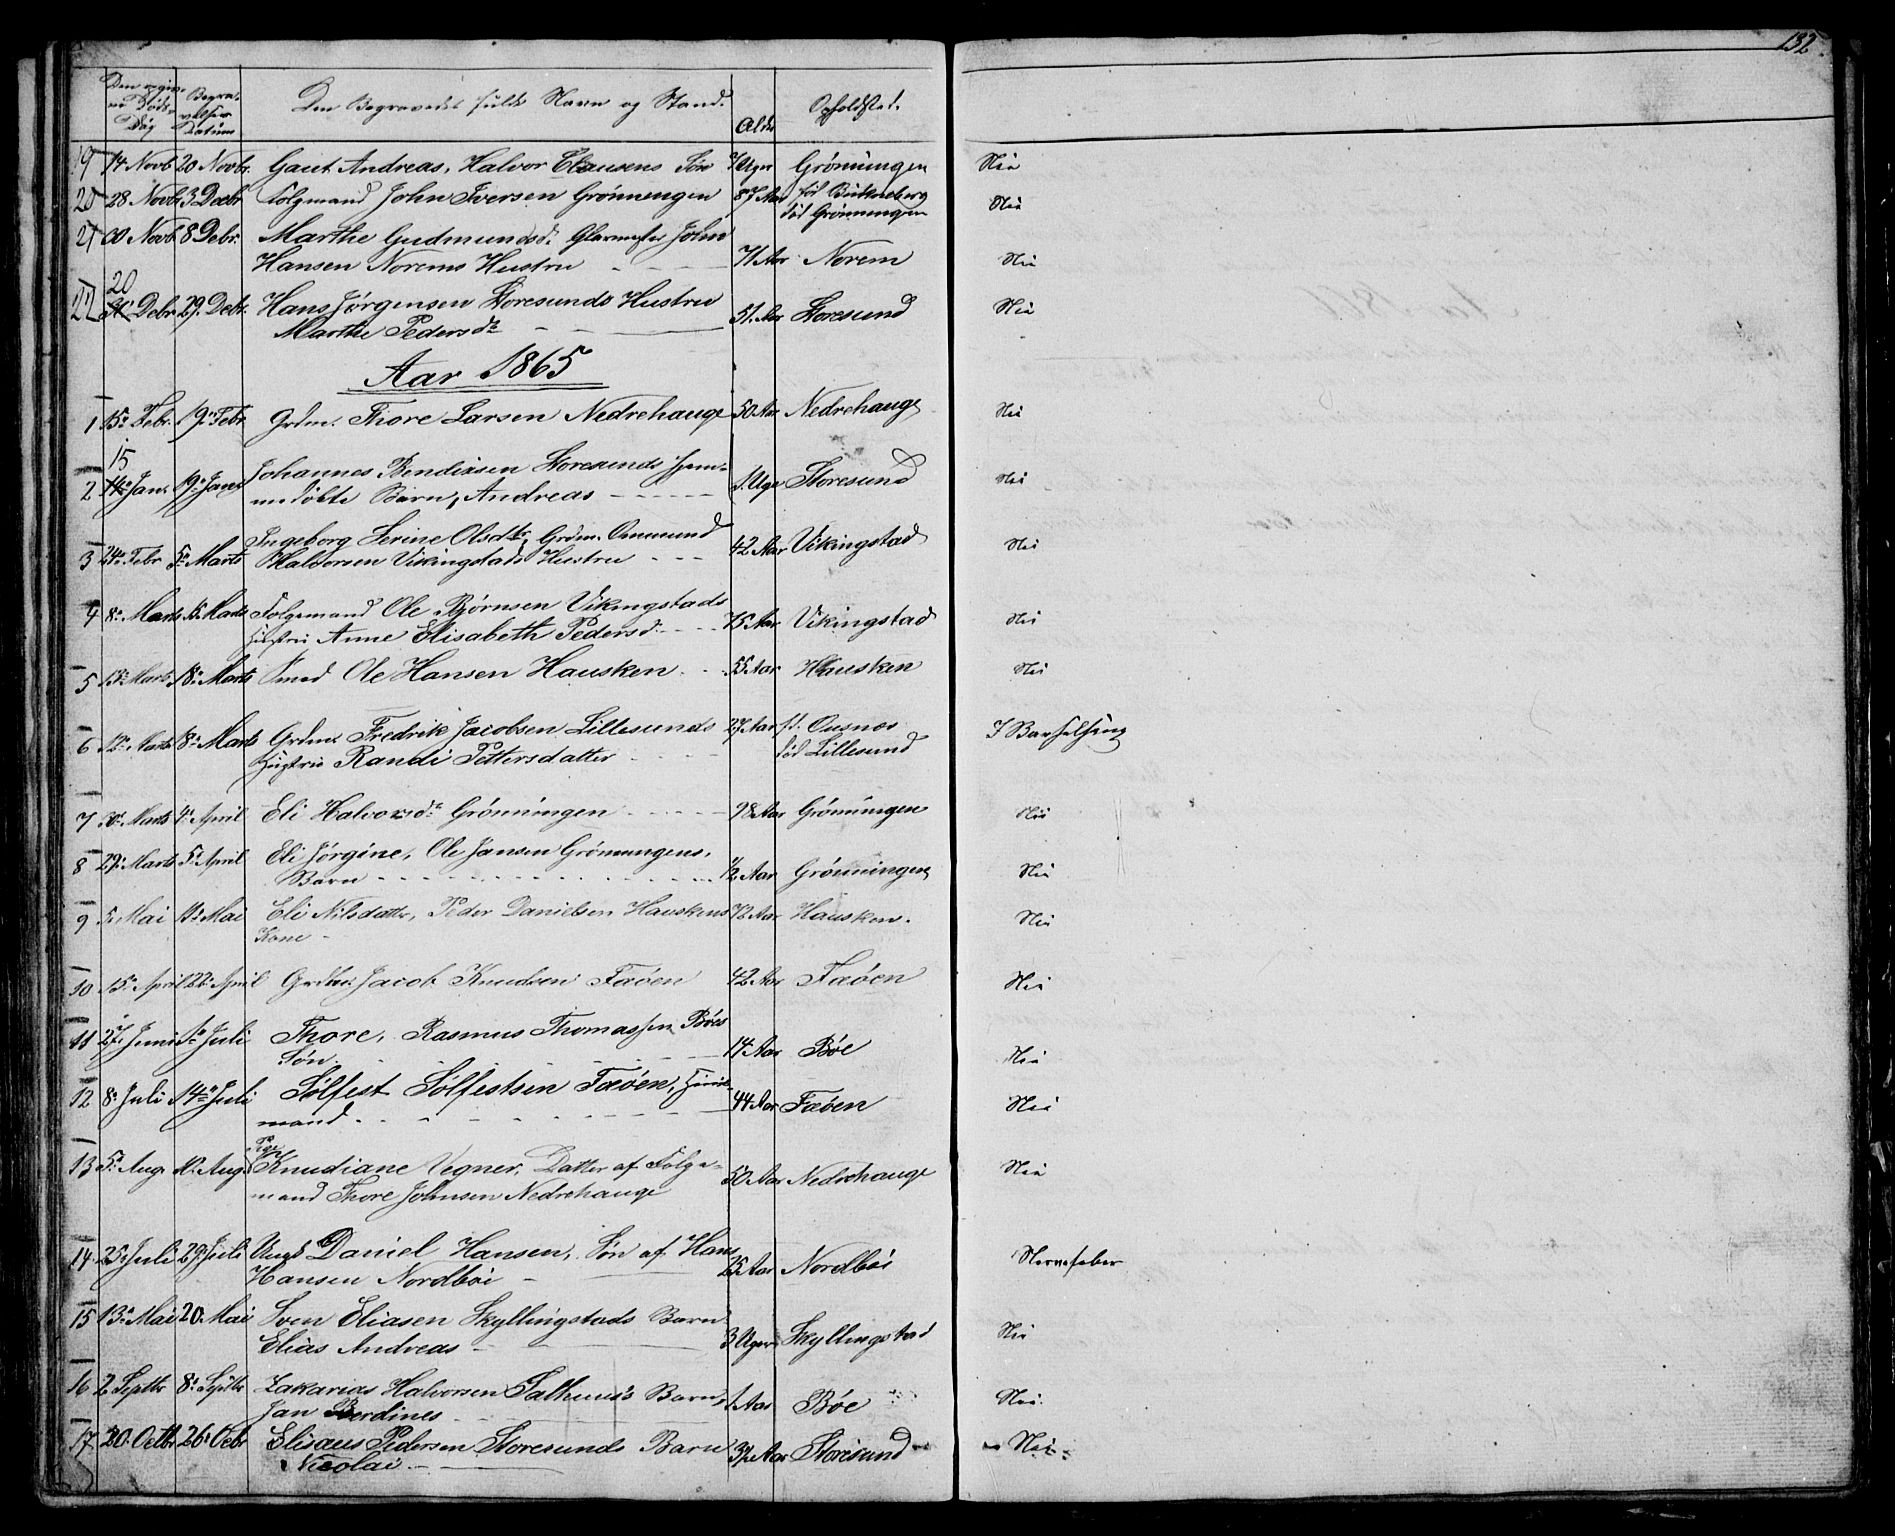 132.
Den Begravedes fulde Navn og Stand. Alder Opholdsted.
19 14 Novb 20 Novbr. Gaut Andreas, Halvor Clausens Søn Uger Grönningen Nei
20 28 Novb 3 Decbr Folgemand John Iversen Grönningen 87 Aar død Grönningen Nei
21 30 Novb 8 Debr. Marthe Gudmundsd. Glarmester John
Hansen Norems Hustru 71 Aar Norem Nei
20
22 Debr 29. Debr. Hans Jørgensen Storesunds Hustru
Marthe Pedersdr 51. Aar Storesund Nei
Aar 1865
1 15 Febr. 19 Febr Grdm. Thore Larsen Nedrehauge 50 Aar Nedrehauge Nei
15
2 Jan. 19 Jan. Johannes Bendixsen Storesunds hjem-
medøbte Barn, Andreas Uger Storesund Nei
3 24 Febr 5 Marts Ingeborg Serine Olsdtr, Grdm. Osmund
Halvorsen Vikingstads Hustru 42 Aar Vikingstad Nei
4 8 Marts 15 Marts Folgemand Ole Bjørnsen Vikingstads
Hustru Anne Elisabeth Pedersd. 75 Aar Vikingstad Nei
5 Marts 18 Marts Smed Ole Hansen Hausken 55 Aar Hausken Nei
6 12 Marts 18 Marts Grdm. Fredrik Jacobsen Lillesunds
Hustru Randi Pettersdatter 27 Aar f. Ousnes
død Lillesund I Barselseng
7 30 Marts 4 April Eli Halvorsdr Grönningen 98 Aar Grönningen Nei
8 29 Marts 5 April Eli Jörgine, Ole Jansen Grönningens
Barn 1/2 Aar Grönningen Nei
9 5 Mai 11 Mai Eli Nilsdatter, Peder Danielsen Hauskens
Kone 73 Aar Hausken. Nei
10 15 April 22 April Grdbr. Jacob Knudsen Fæöen 42 Aar Fæöen Nei
11 27 Juni 1 Juli Thore, Rasmus Thomassen Böes
Sön 14 Aar Böe Nei
12 8 Juli 14 Juli Sölfest Sölfestsen Fæöen, Huus-
mand 44 Aar Fæöen Nei
13 5 Aug 10 Aug Pige Knudiane Vegner, Datter af Folge-
mand Thore Johnsen Nedrehauge 50 Aar Nedrehauge Nei
14 25 Juli 29 Juli Ungk Daniel Hansen, Sön af Hans
Hansen Nordböi 25 Aar Nordböi Nervefeber
15 13 Mai 20 Mai Sven Eliasen Skyllingstads Barn
Elias Andreas 3 Uger Skyllingstad Nei
16 2 Septbr 8 Septbr Zakarias Halvorsen Salhuus's Barn,
Jan Berdines 1 Aar Böe Nei
17 20 Octb 26 Ocbr Elisæus Pedersen Storesunds Barn
Nicolai 3 1/2 Aar Storesund Nei